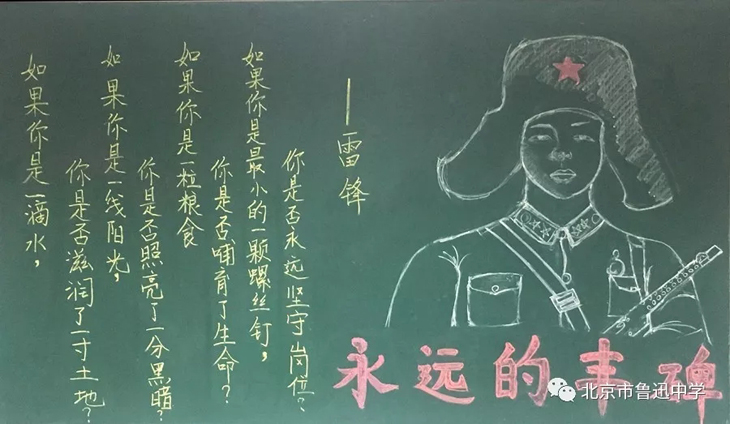 如果你是一滴水，
你是否滋润了一寸土地？
如果你是一线阳光，
你是否照亮了一分黑暗？
如果你是一粒粮食
你是否哺育了生命？
如果你是最小的一颗螺丝钉，
你是否永远坚守岗位？
——雷锋
永远的丰碑
北京市鲁迅中学